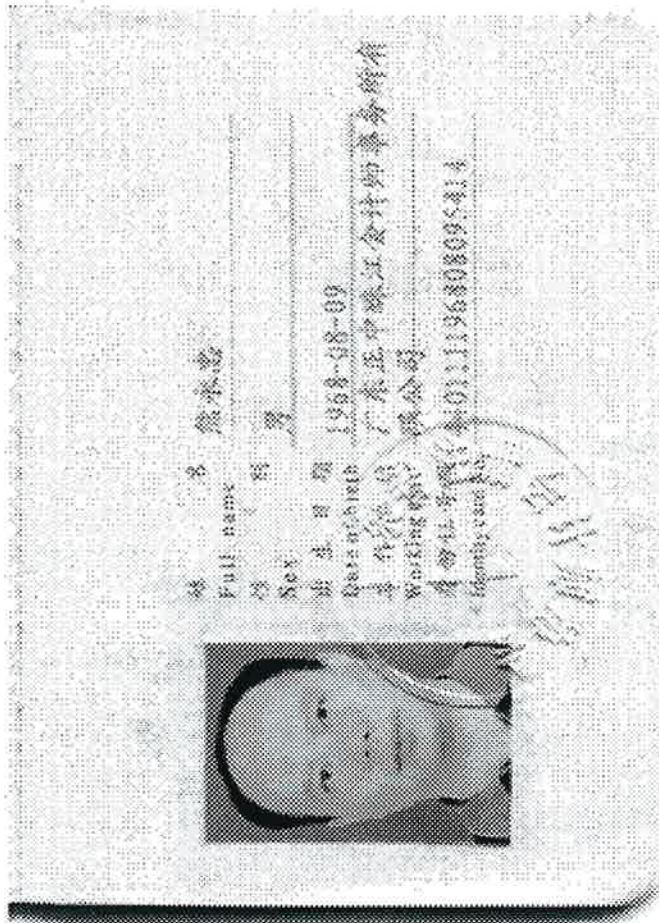 姓 名 熊永忠
Full name
性 别 男
Sex
出 生 日 期 1968-08-09
Date of birth
工 作 单 位 广东正中珠江会计师事务所有
Working unit 限公司
身份证号码 440111196808095414
Identity card No.